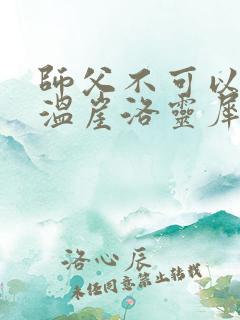 師父不可以
溫崖洛靈犀
洛心辰
未经同意禁止转载